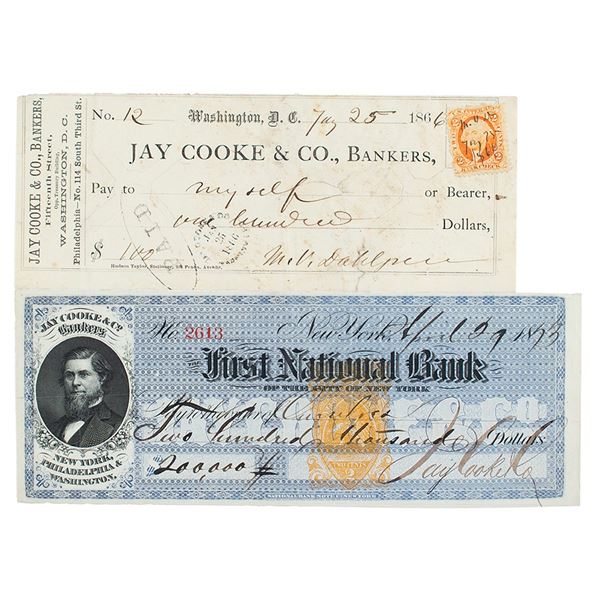 JAY COOKE & CO., BANKERS,
Fifteenth Street,
Opp. Treasury Building,
WASHINGTON, D. C.
Philadelphia - No. 114 South Third St.
No. 12 Washington, D. C. Jay 25 1866
JAY COOKE & CO., BANKERS,
Pay to myself or Bearer,
one hundred Dollars,
$ 100
PAID
Hudson Taylor, Stationer, 334 Penna. Avenue.
JAY COOKE & CO.
Bankers
NEW YORK,
PHILADELPHIA &
WASHINGTON.
No. 2613 New York, April 29 1873
First National Bank
OF THE CITY OF NEW YORK
Two hundred thousand Dollars
$200,000
Jay Cooke & Co
NATIONAL BANK NOTE CO. NEW YORK